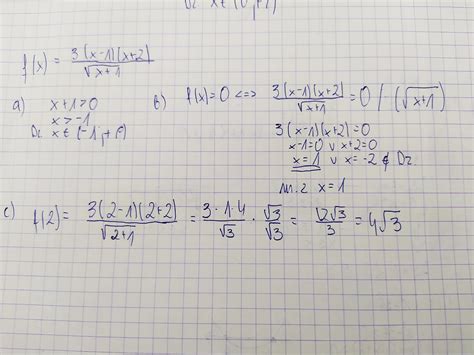 Dz x∈(0,+
f(x) = 3(x-1)(x+2) / √x+1
a) x+1>0
x>-1
Dz x∈(-1,+
b) f(x)=0 <=> 3(x-1)(x+2) / √x+1 = 0 / ·(√x+1)
3(x-1)(x+2)=0
x-1=0 ∨ x+2=0
x=1 ∨ x=-2 ∉ Dz
m.z x=1
c) f(2)= 3(2-1)(2+2) / √2+1 = 3·1·4 / √3 · √3 / √3 = 12√3 / 3 = 4√3